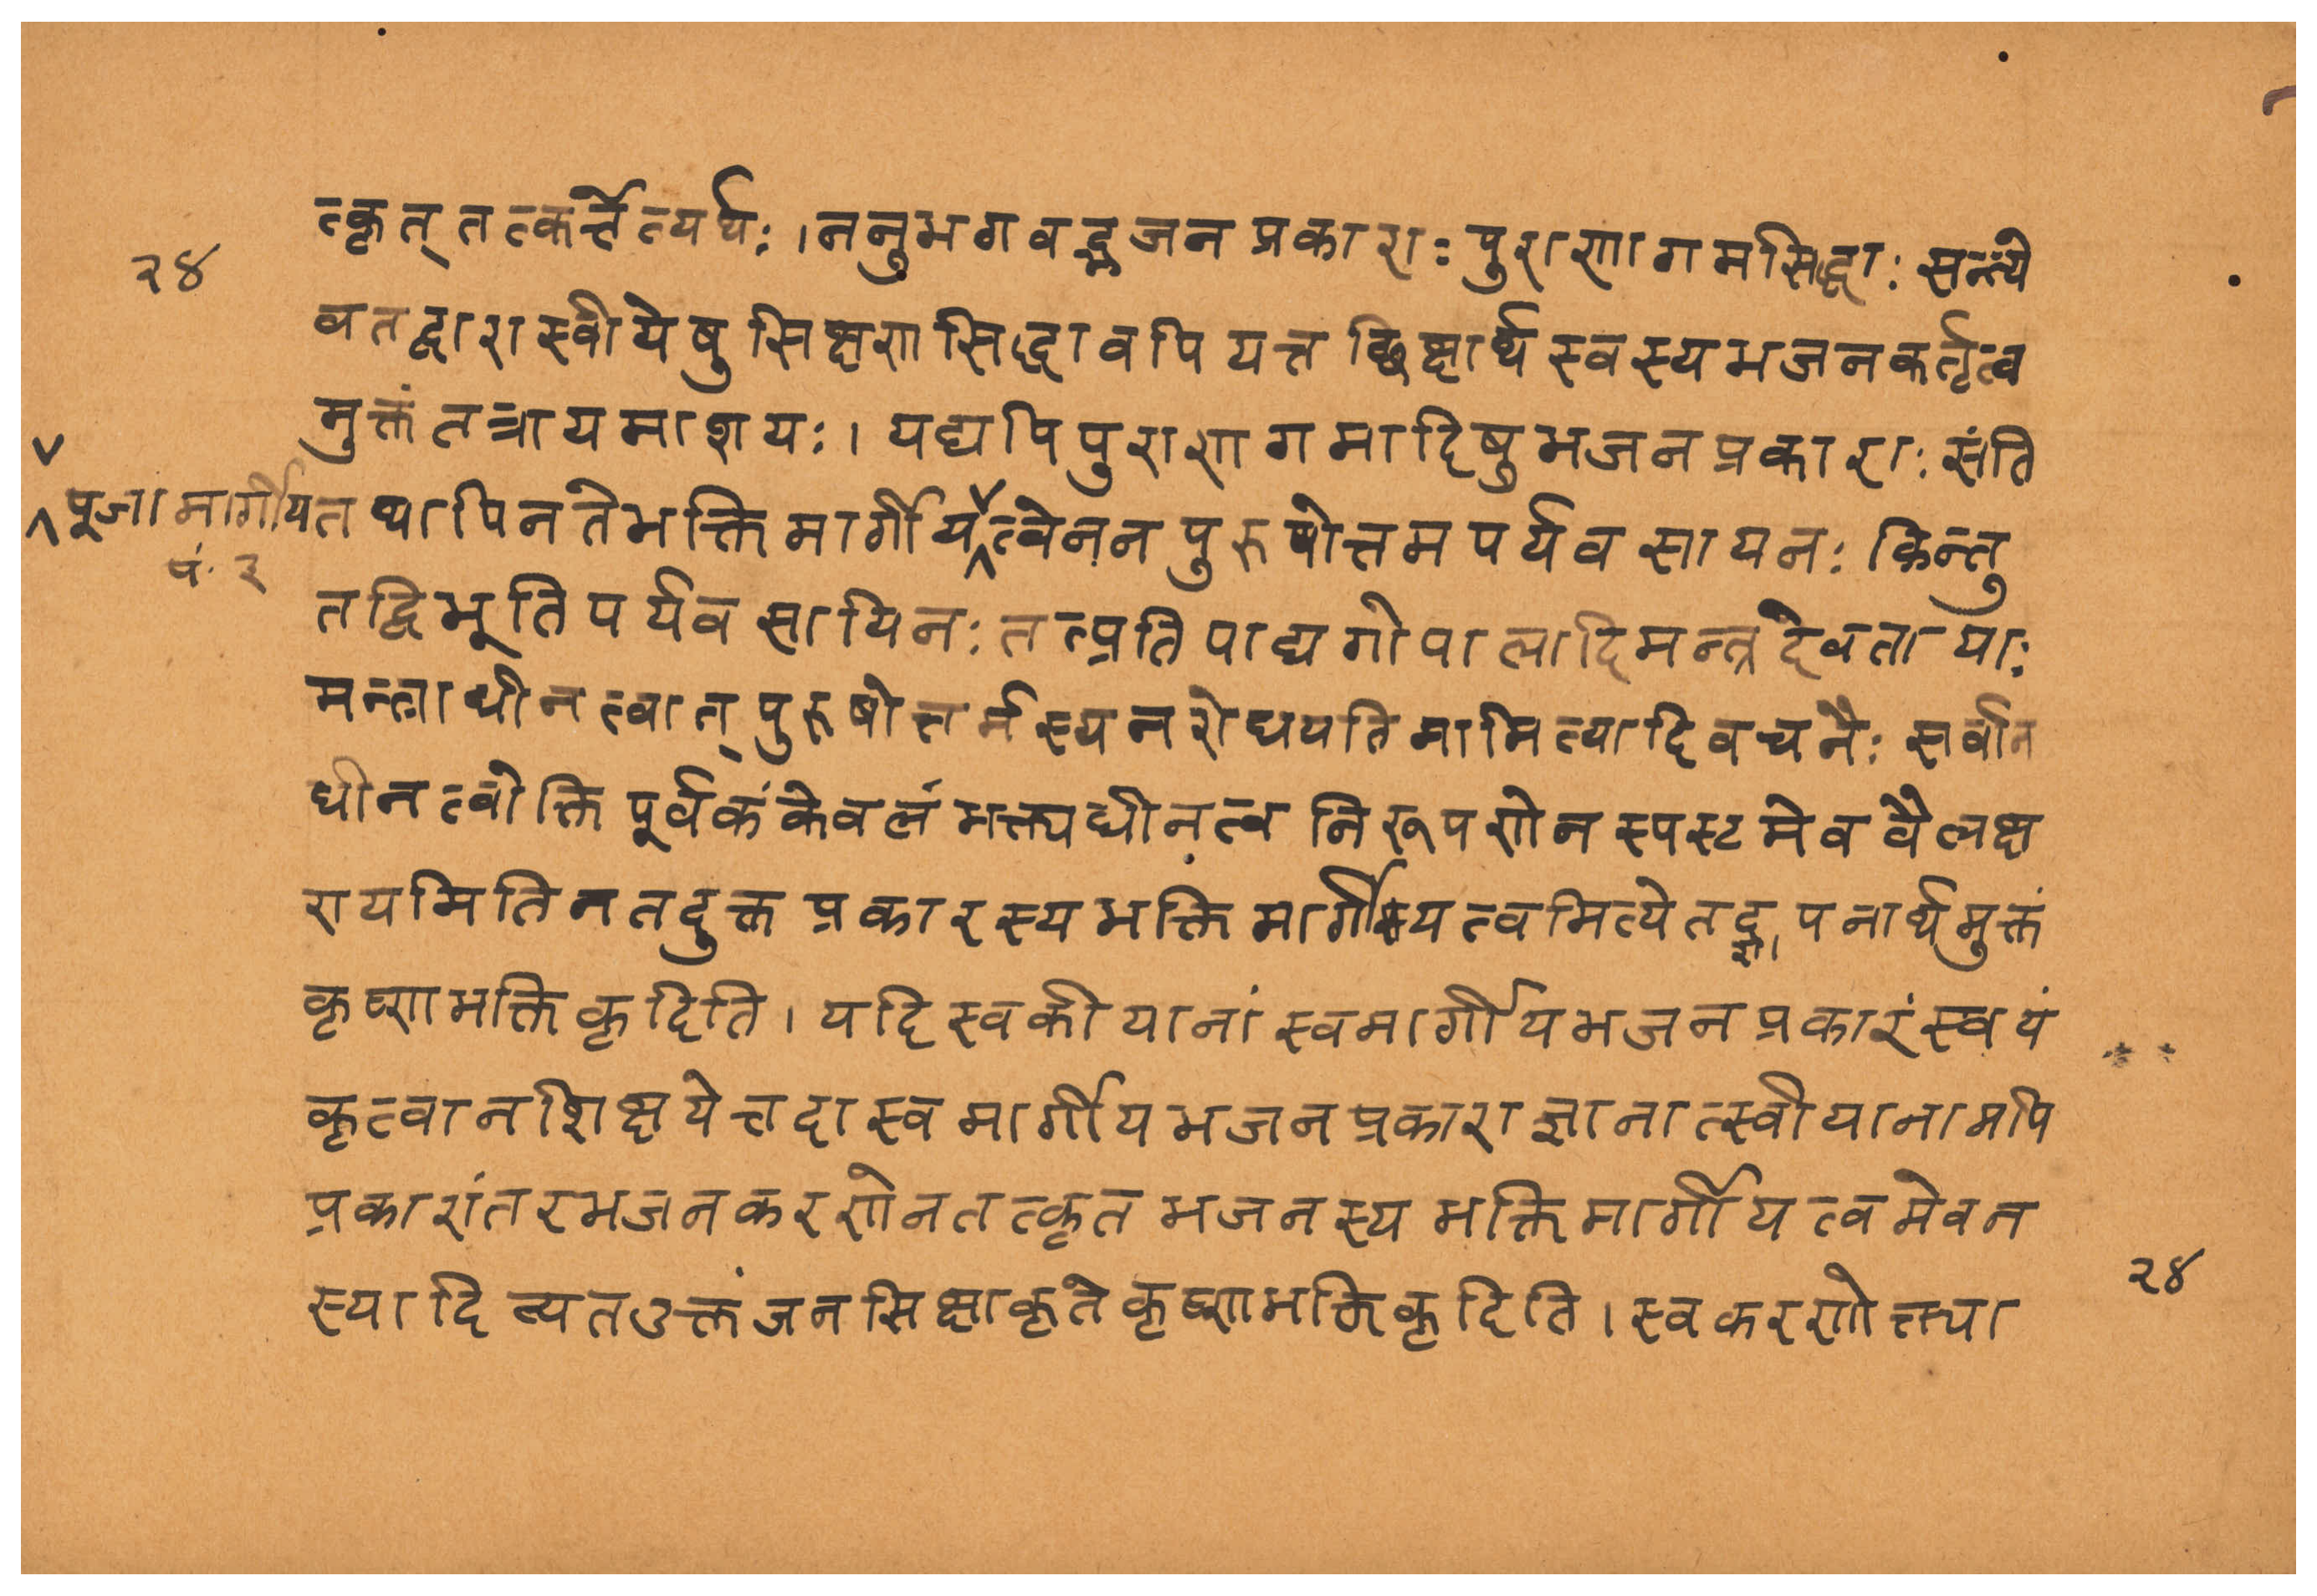 त्कृत् तत्कर्त्तेत्यर्थः । ननुभगवद्भजनप्रकाराः पुराणागमसिद्धाः सन्त्ये
२४
वतद्वारास्वीयेषुसिक्षणसिद्धावपियत्तछिक्षार्थंस्वस्यभजनकर्तृत्व
मुक्तंतत्रायमाशयः । यद्यपिपुराणागमादिषुभजनप्रकाराः संति
पूजामार्गीय
तथापिनतेभक्तिमार्गीयत्वेनन पुरुषोत्तमपर्यवसायनः किन्तु
पं. २
तद्विभूतिपर्यवसायिनः तत्प्रतिपाद्यगोपालादिमन्त्रदेवतायाः
मन्त्राधीनत्वात् पुरुषोत्तमस्यनरोधयतिमामित्यादिवचनैः सर्वान
धीनत्वोक्तिपूर्वकंकेवलंभक्त्यधीनत्वनिरूपणेनस्पस्टमेववैलक्ष
ण्यमितिनतदुक्तप्रकारस्यभक्तिमार्गीयत्वमित्येतद्ज्ञापनार्थमुक्तं
कृष्णभक्तिकृदिति । यदिस्वकीयानांस्वमार्गीयभजनप्रकारंस्वयं
कृत्वानशिक्षयेत्तदास्वमार्गीयभजनप्रकाराज्ञानात्स्वीयानामपि
प्रकारांतरभजनकरणेनतत्कृतभजनस्यभक्तिमार्गीयत्वमेवन
स्यादित्यतउक्तंजनसिक्षाकृतेकृष्णभक्तिकृदिति । स्वकरणोक्त्या
२४